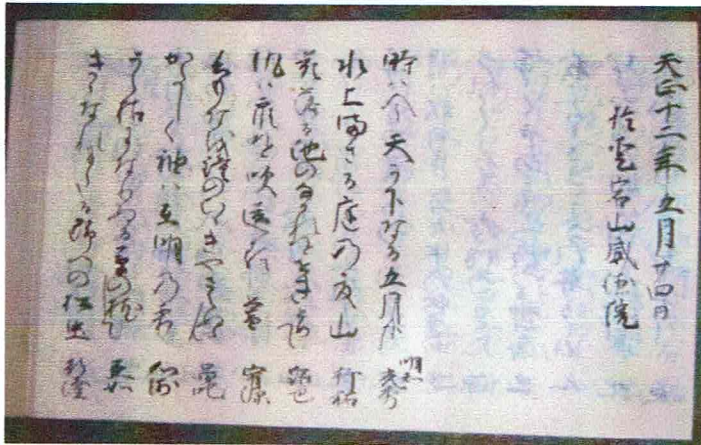 天正十二年五月廿四日
於愛宕山威徳院
時ハ今天か下なる五月哉 明智光秀
水上満さる庭の夏山 行祐
花落る池のなかれをせきとめて 紹巴
風ハ霞を吹送る暮 宥源
鐘のひゝきや 昌叱
かたしく袖ハ有明の霜 心前
うら枯になりぬる草の枕して 兼如
きゝなれにたる野への松虫 行澄